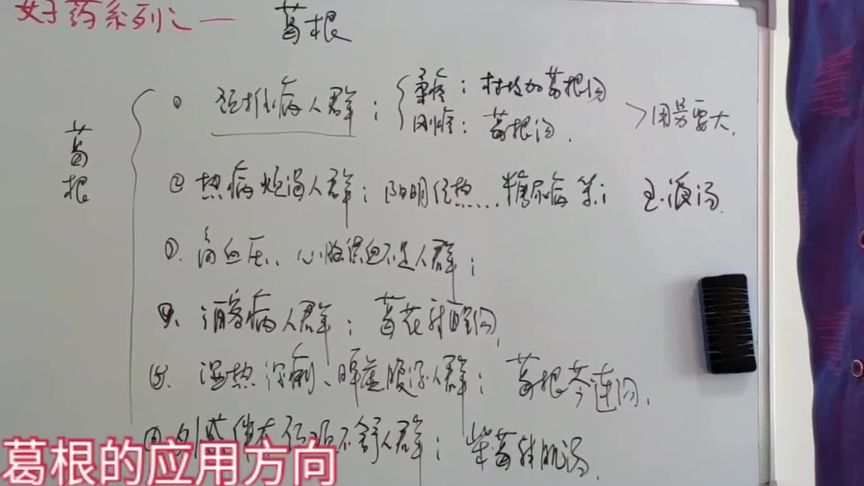 女子药系列之一 葛根
葛根
① 颈椎病人群：
柔痉：桂枝加葛根汤
刚痉：葛根汤.
>用量要大.
② 热病烦渴人群；阳明经热...糖尿病等；玉液汤.
③. 高血压、心脑供血不足人群；
④. 消酒病人群；葛花解酲汤.
⑤. 湿热泻痢、脾虚腹泻人群；葛根芩连汤.
外感伴有颈项不舒人群；柴葛解肌汤.
葛根的应用方向